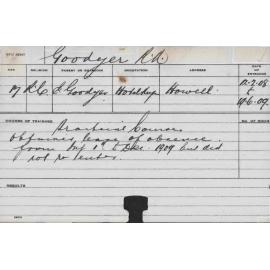 Goodyer R.A.
AGE RELIGION PARENT OR GUARDIAN OCCUPATION ADDRESS DATE OF ENTRANCE
17 R.C. Goodyer Howell 12-2-08
to
COURSE OF TRAINING
Practical Course
obtained leave of absence
from Sep 1st to Dec. 1909 but did
not re enter.
RESULTS